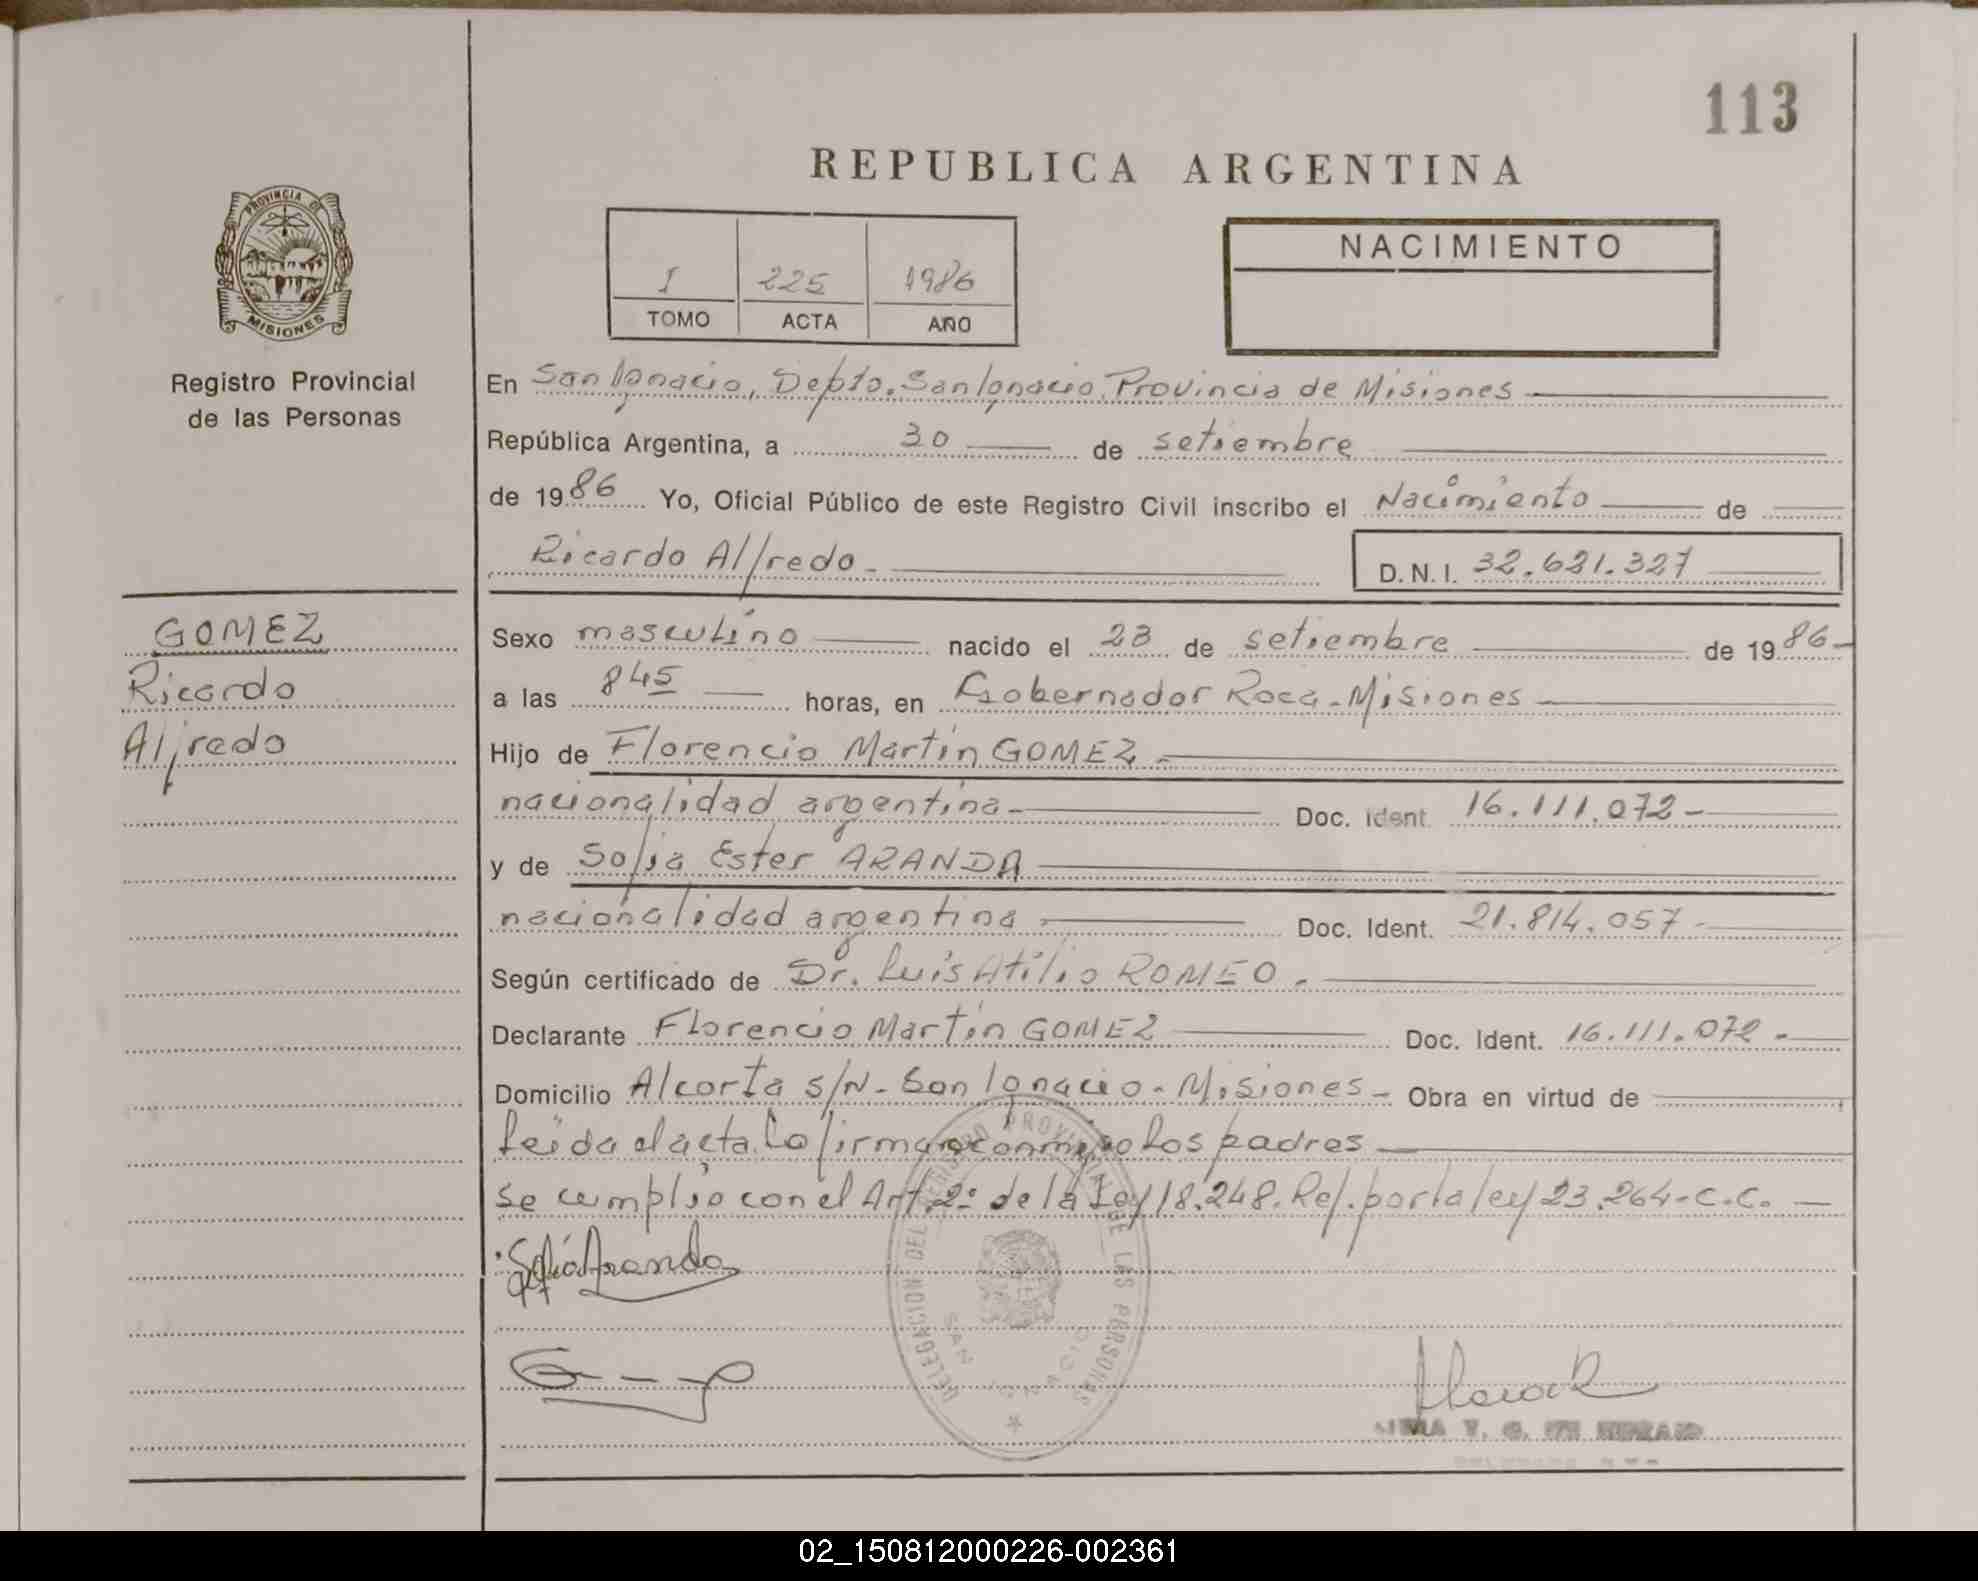 113
REPUBLICA ARGENTINA
PROVINCIA DE
MISIONES
Registro Provincial
de las Personas
I 225 1986
TOMO ACTA AÑO
NACIMIENTO
En San Ignacio, Depto. San Ignacio, Provincia de Misiones
República Argentina, a 30 de setiembre
de 1986 Yo, Oficial Público de este Registro Civil inscribo el Nacimiento de
Ricardo Alfredo.
D.N.I. 32.621.327
GOMEZ
Ricardo
Alfredo
Sexo masculino nacido el 23 de setiembre de 1986-
a las 845 horas, en Gobernador Roca - Misiones
Hijo de Florencio Martín GOMEZ.
nacionalidad argentina- Doc. Ident. 16.111.072-
y de Sofia Ester ARANDA
nacionalidad argentina. Doc. Ident. 21.814.057-
Según certificado de Dr. Luis Atilio ROMEO.
Declarante Florencio Martín GOMEZ Doc. Ident. 16.111.072-
Domicilio Alcorta s/N- San Ignacio- Misiones- Obra en virtud de
Leída el acta. Lo firman conmigo los padres
se cumplio con el Art. 2º de la Ley 18.248. Ref. por la ley 23.264-C.C.
Sofía Aranda
DELEGACION DEL REGISTRO PROVINCIAL DE LAS PERSONAS
SAN IGNACIO
V. G. DE
02_150812000226-002361